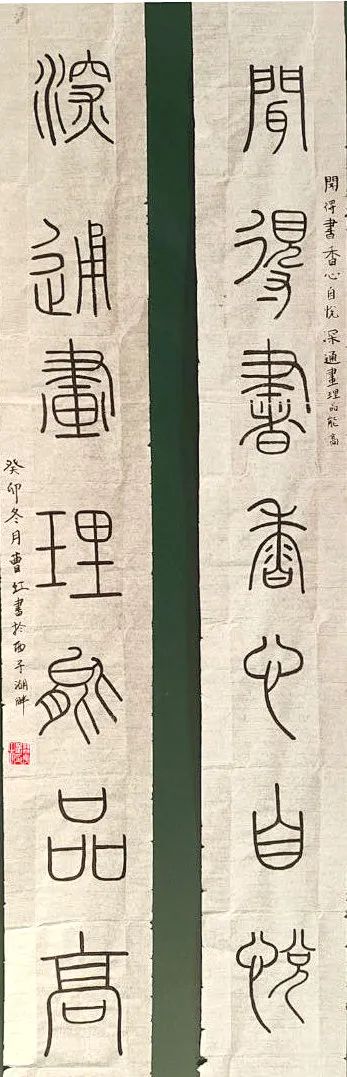 聞得書香心自悅
聞得書香心自悅 深通畫理品能高
深通畫理能品高
癸卯冬月曹書於西子湖畔